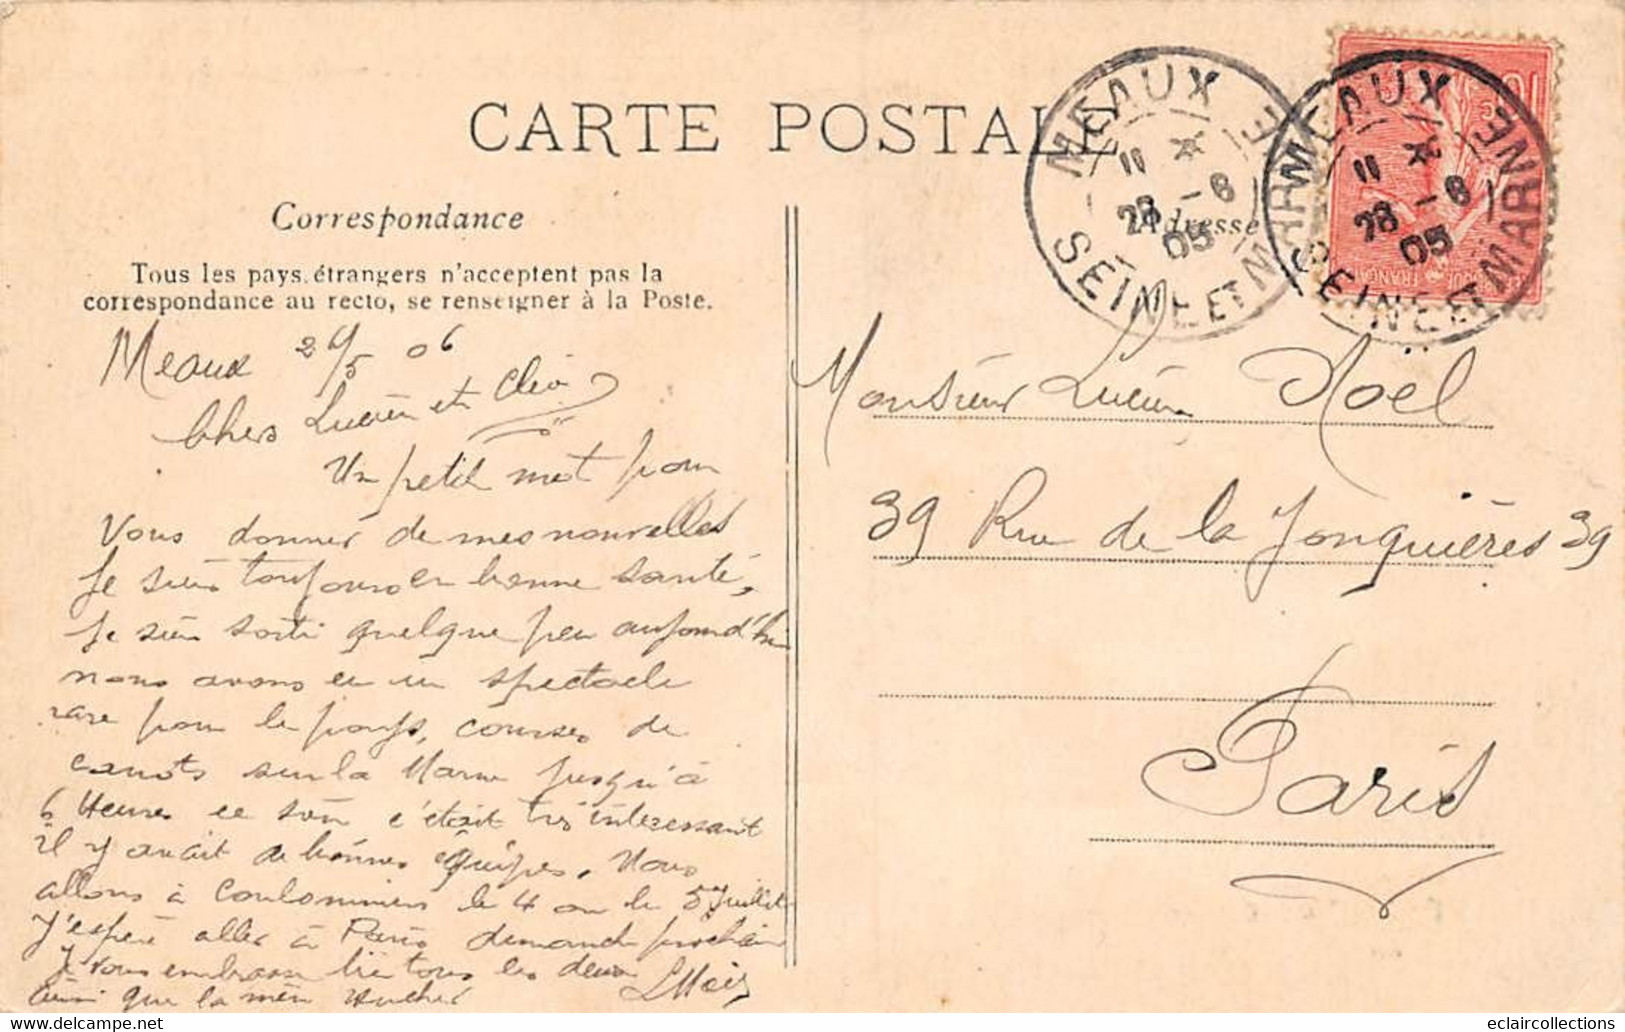 CARTE POSTALE
Correspondance
Tous les pays étrangers n'acceptent pas la
correspondance au recto, se renseigner à la Poste.
Meaux 06
Chers Lucien et Cléo
Un petit mot pour
Vous donner de mes nouvelles
Je suis toujours en bonne santé,
Je suis sorti quelque peu aujourd'hui
nous avons eu un spectacle
rare pour le pays, courses de
canots sur la Marne jusqu'à
6 Heures ce soir c'était très interessant
il y avait de bonnes équipes. Nous
allons à Coulommiers le 4 ou le 5 Juillet
J'espère aller à Paris dimanche prochain
Je vous embrasse bien tous les deux
ainsi que la mère
Adresse
MEAUX
11
28 - 6
05
SEINE ET MARNE
MEAUX
11
28 - 6
05
SEINE ET MARNE
10
Monsieur Lucien Noël
39 Rue de la Jonquières 39
Paris
eclaircollections
www.delcampe.net